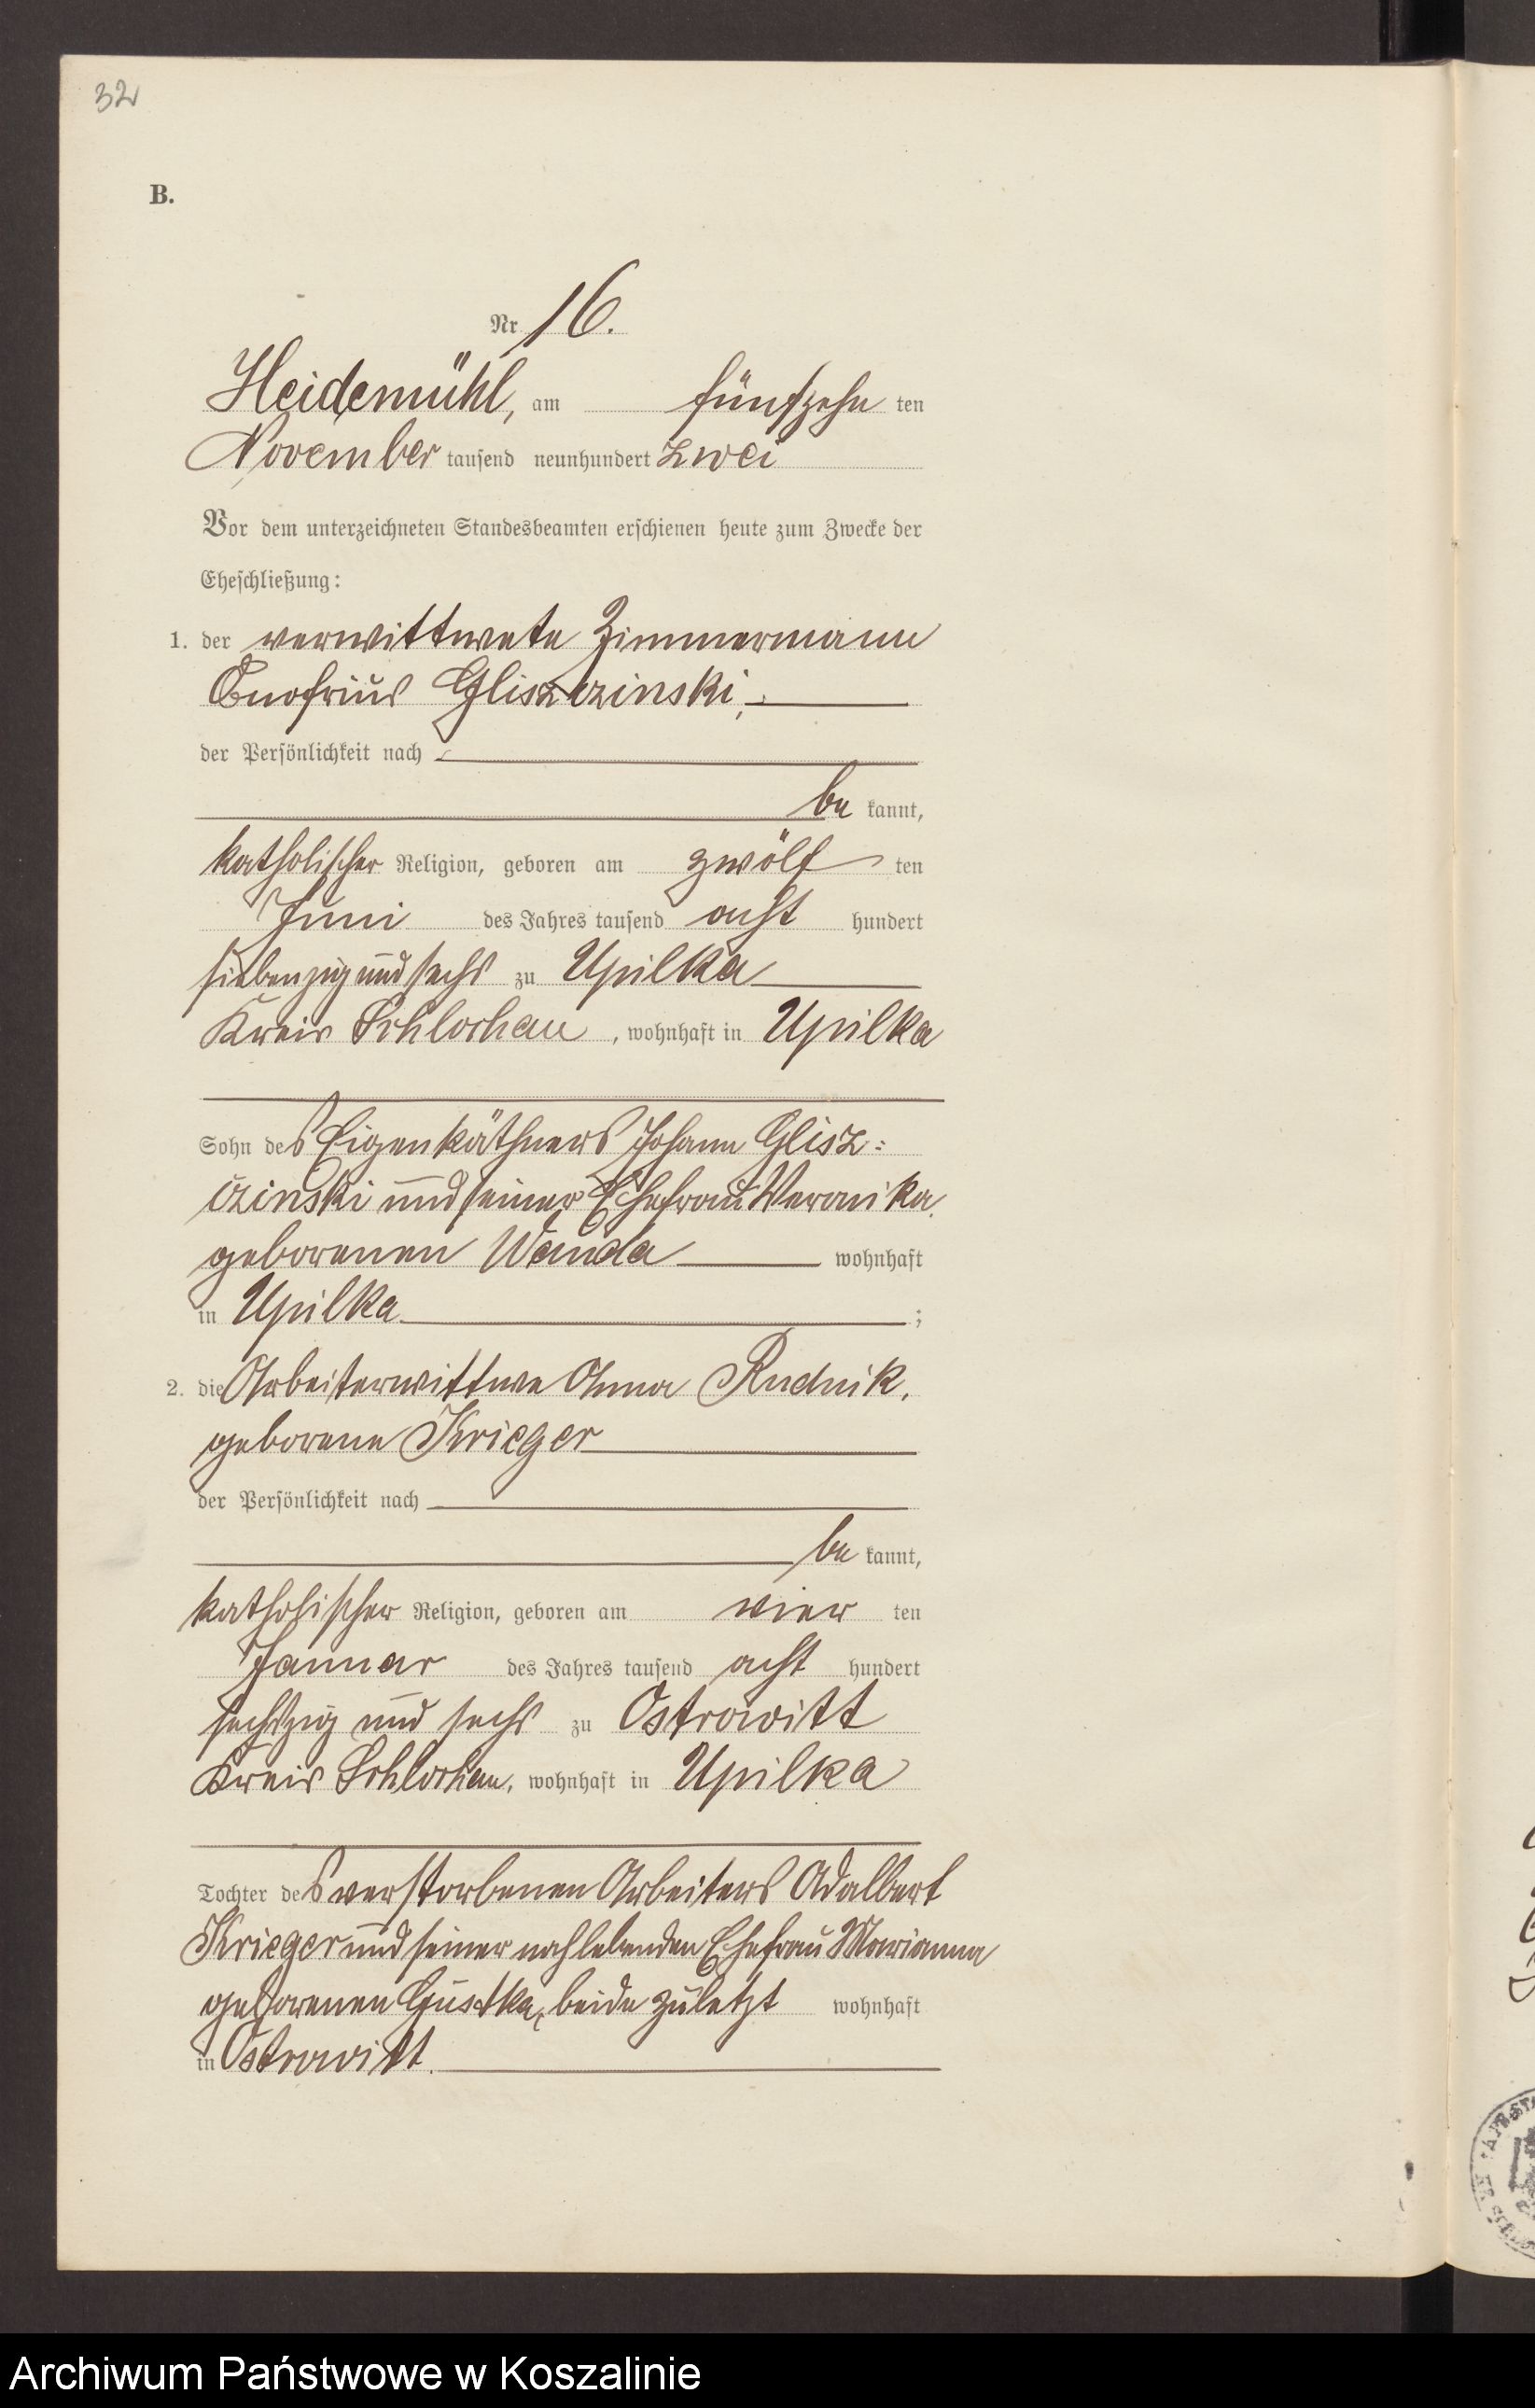 32
B.
Nr. 16.
Heidemühl, am fünfzehn ten
November tausend neunhundert zwei
Vor dem unterzeichneten Standesbeamten erschienen heute zum Zwecke der
Eheschließung:
1. der verwittwete Zimmermann
Onofrius Gliszczinski,
der Persönlichkeit nach
be kannt,
katholischer Religion, geboren am zwölf ten
Juni des Jahres tausend acht hundert
siebenzig und sechs zu Upilka
Kreis Schlochau, wohnhaft in Upilka
Sohn des Eigenkäthners Johann Glisz=
czinski und seiner Ehefrau Veronika
geborenen Wanda wohnhaft
in Upilka ;
2. die Arbeiterwittwe Anna Rudnik,
geborene Krieger
der Persönlichkeit nach
be kannt,
katholischer Religion, geboren am vier ten
Januar des Jahres tausend acht hundert
sechszig und sechs zu Ostrowitt
Kreis Schlochau, wohnhaft in Upilka
Tochter des verstorbenen Arbeiters Adalbert
Krieger und seiner nachlebenden Ehefrau Marianna
geborenen Gustka, beide zuletzt wohnhaft
in Ostrowitt.
Archiwum Państwowe w Koszalinie